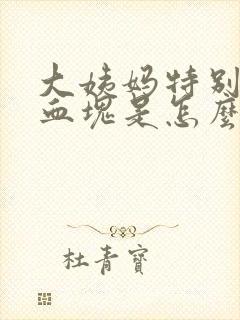 大姨妈特别
血塊是怎麼
杜青寶